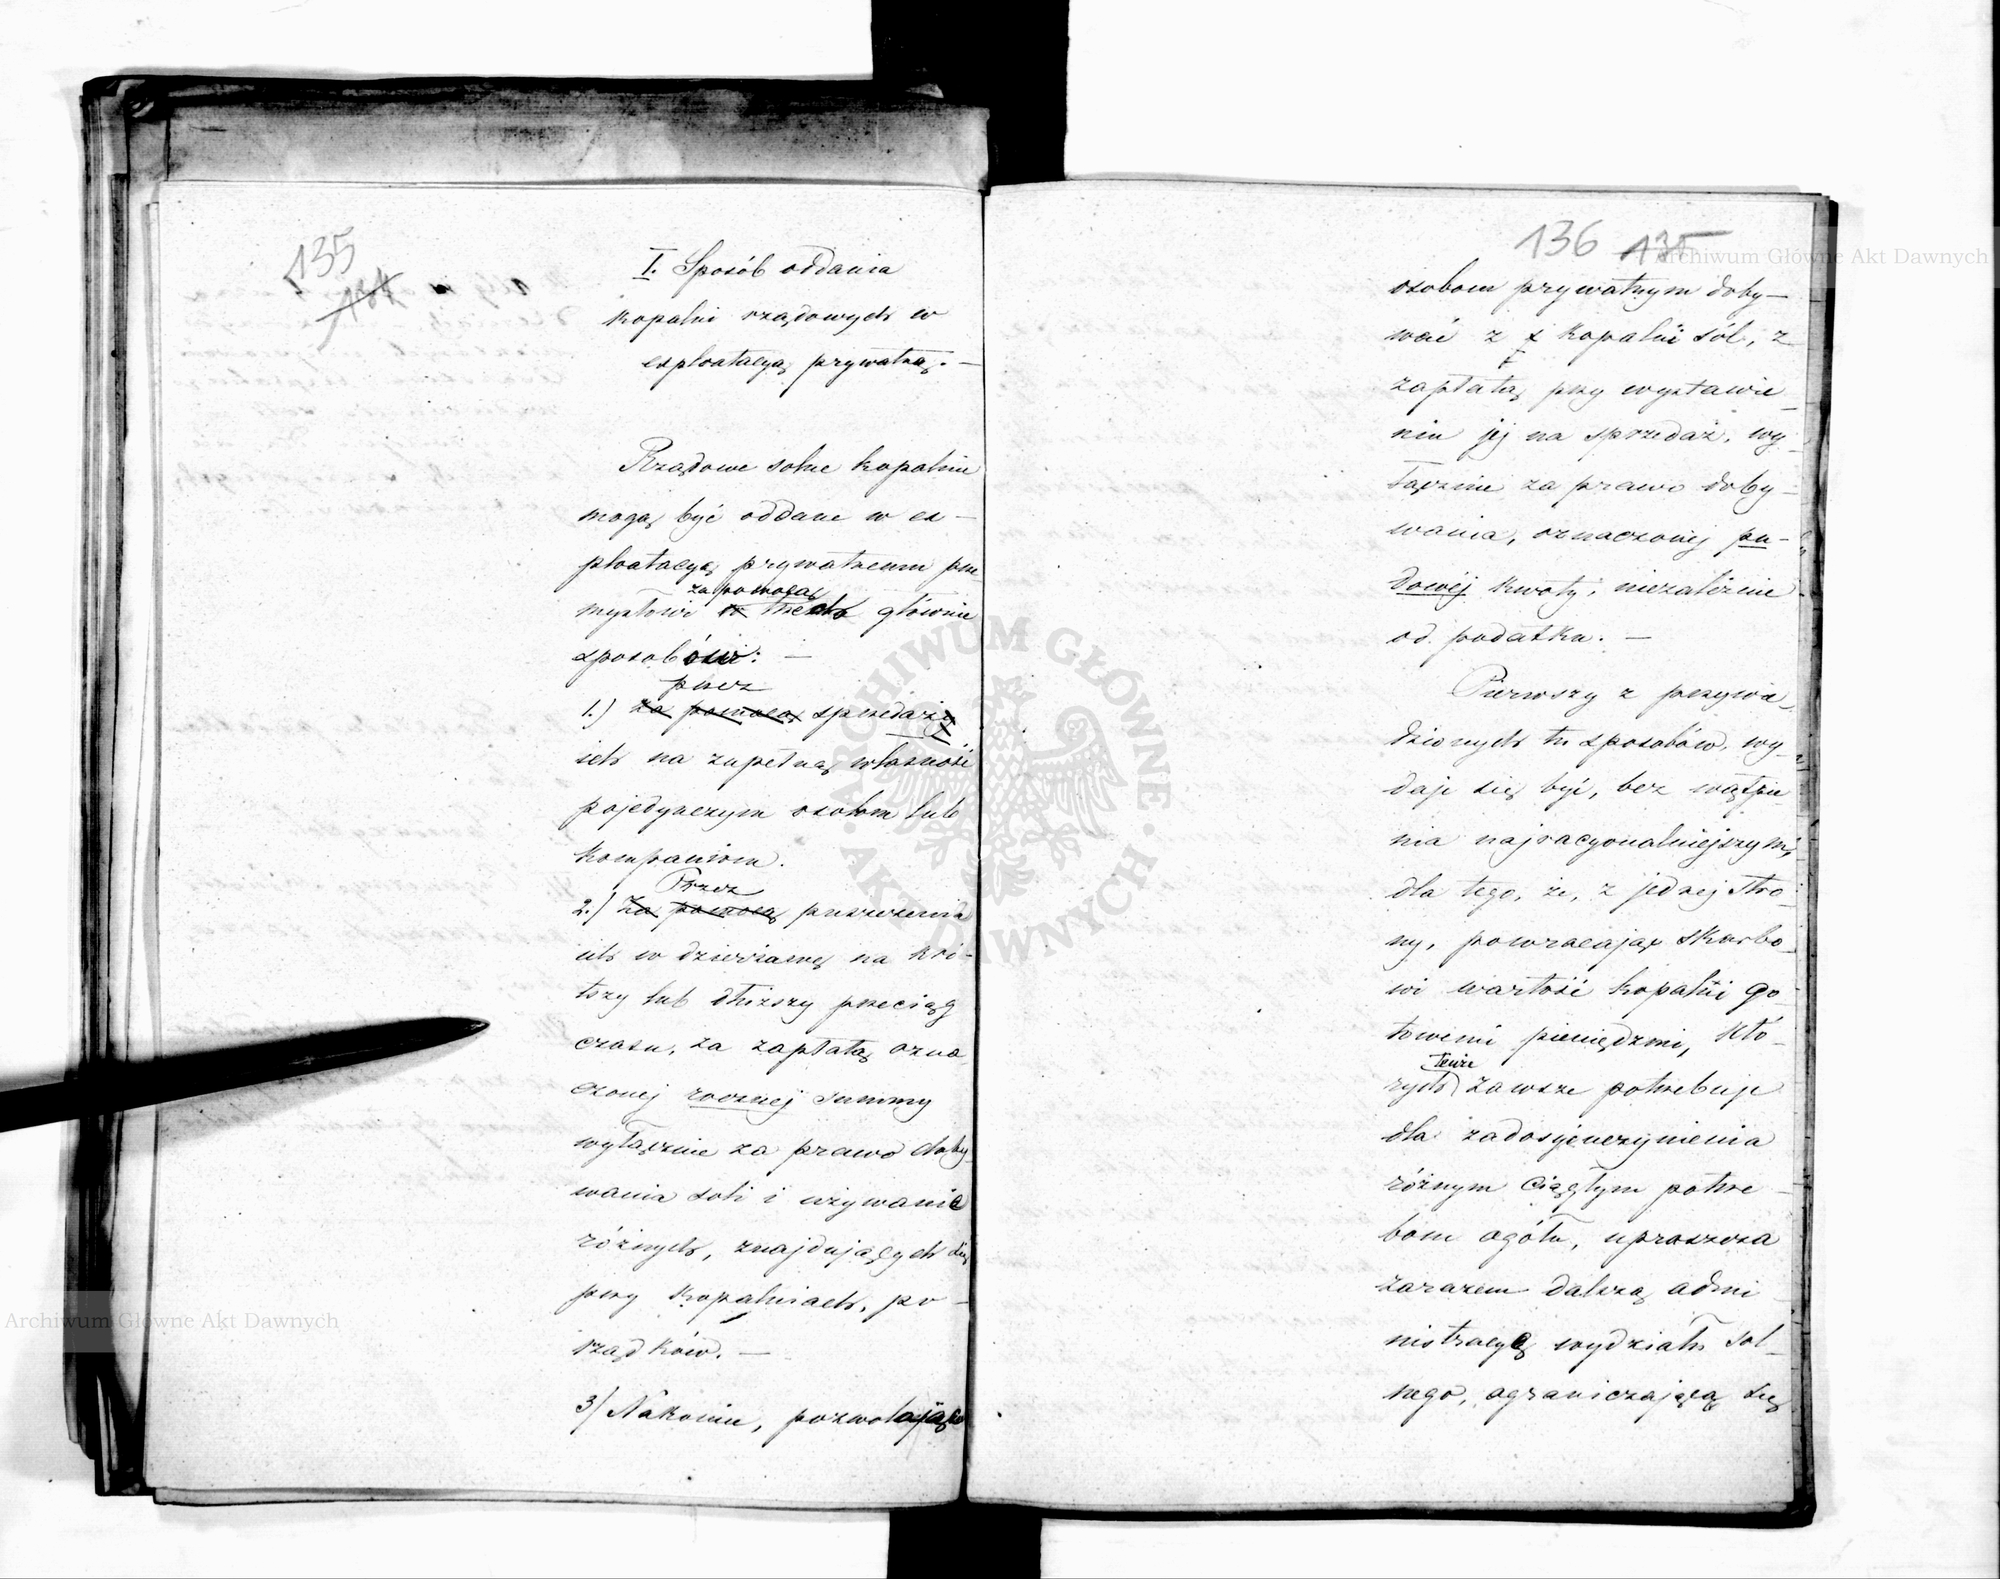 135
134
I. Sposób oddania
kopalni rządowych w
exploatacyą prywatną. —
Rządowe solne kopalnie
mogą być oddane w ex-
ploatacyą prywatnemu prze
za pomocą
mysłowi w trzech głównie
sposobów: —
przez
1.) za pomocą sprzedaży
ich na zupełną własność
pojedynczym osobom lub
kompaniom.
Przez
2.) Za pomocą puszczenia
ich w dzierżawę na kró-
tszy lub dłuższy przeciąg
czasu, za zapłatą ozna
czonej rocznej summy
wyłącznie za prawo doby-
wania soli i używanie
różnych, znajdujących się
przy kopalniach, po-
rządków. —
3) Nakonie, pozwalając
136 135
osobom prywatnym doby-
wać z kopalni sól, z
zapłatą przy wystawie-
niu jej na sprzedaż, wy-
łącznie za prawo doby-
wania, oznaczonej pu-
dowéj kwoty, niezależnie
od podatku. —
Pierwszy z przywie-
dzionych tu sposobów, wy-
daje się być, bez wątpie-
nia najracyonalniejszym,
dla tego, że, z jednej stro-
ny, powracając skarbo-
wi wartość kopalni go-
towemi pieniędzmi, któ-
tenże
rych zawsze potrzebuje
dla zadosyćuczynienia
różnym ciągłym potrze-
bom ogółu, uproszcza
zarazem dalszą admi-
nistracyę wydziału sol-
nego, ograniczającą się
Archiwum Główne Akt Dawnych
Archiwum Główne Akt Dawnych
ARCHIWUM GŁÓWNE AKT DAWNYCH